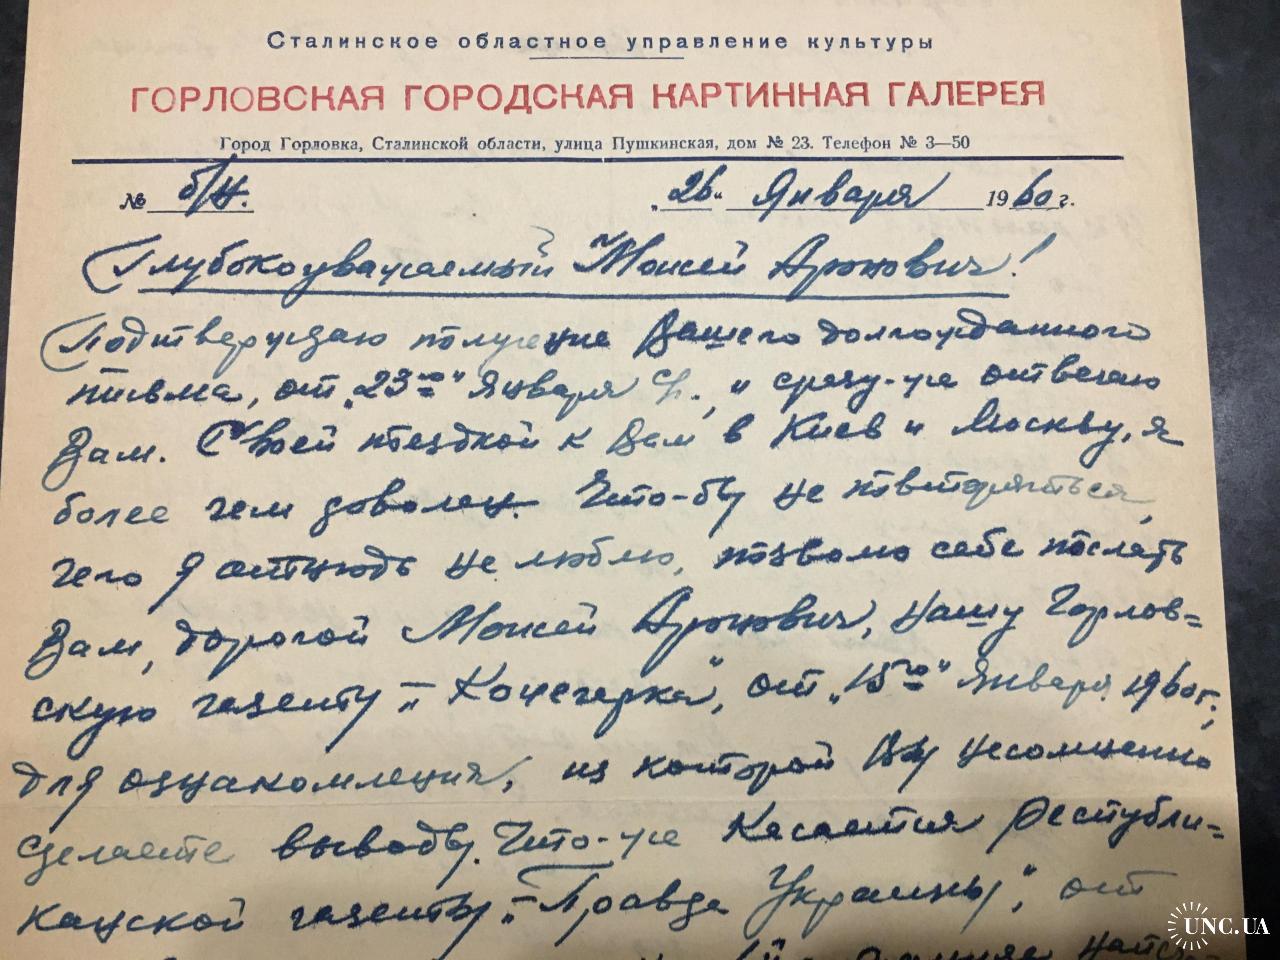 Сталинское областное управление культуры
ГОРЛОВСКАЯ ГОРОДСКАЯ КАРТИННАЯ ГАЛЕРЕЯ
Город Горловка, Сталинской области, улица Пушкинская, дом № 23. Телефон № 3—50
№ б/н. „26“ Января 1960 г.
Глубокоуважаемый Моисей Аронович!
Подтверждаю получение Вашего долгожданного
письма, от „23го“ Января с/г., и сразу-же отвечаю
Вам. Своей поездкой к Вам в Киев и Москву, я
более чем доволен. Что-бы не повторяться,
чего я отнюдь не люблю, позволю себе послать
Вам, дорогой Моисей Аронович, нашу Горлов=
скую газету – „Кочегарка“, от „15го“ Января 1960 г.,
для ознакомления, из которой Вы несомненно
сделаете выводы. Что-же касается Республи=
канской газеты – „Правда Украины“, от